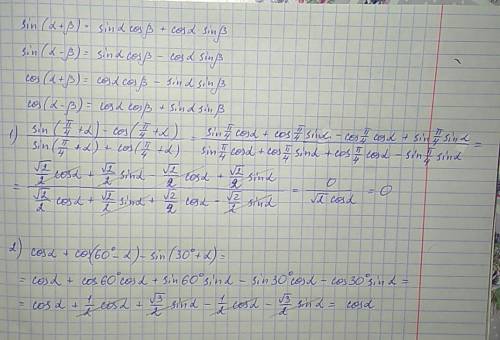 sin(α+β) = sinα cosβ + cosα sinβ
sin(α-β) = sinα cosβ - cosα sinβ
cos(α+β) = cosα cosβ - sinα sinβ
cos(α-β) = cosα cosβ + sinα sinβ
1) (sin(π/4+α) - cos(π/4+α))/(sin(π/4+α) + cos(π/4+α)) = (sin π/4 cosα + cos π/4 sinα - cos π/4 cosα + sin π/4 sinα)/(sin π/4 cosα + cos π/4 sinα + cos π/4 cosα - sin π/4 sinα) =
= (√2/2 cosα + √2/2 sinα - √2/2 cosα + √2/2 sinα)/(√2/2 cosα + √2/2 sinα + √2/2 cosα - √2/2 sinα) = 0/(√2 cosα) = 0
2) cosα + cos(60°-α) - sin(30°+α) =
= cosα + cos60°cosα + sin60°sinα - sin30°cosα - cos30°sinα =
= cosα + 1/2 cosα + √3/2 sinα - 1/2 cosα - √3/2 sinα = cosα